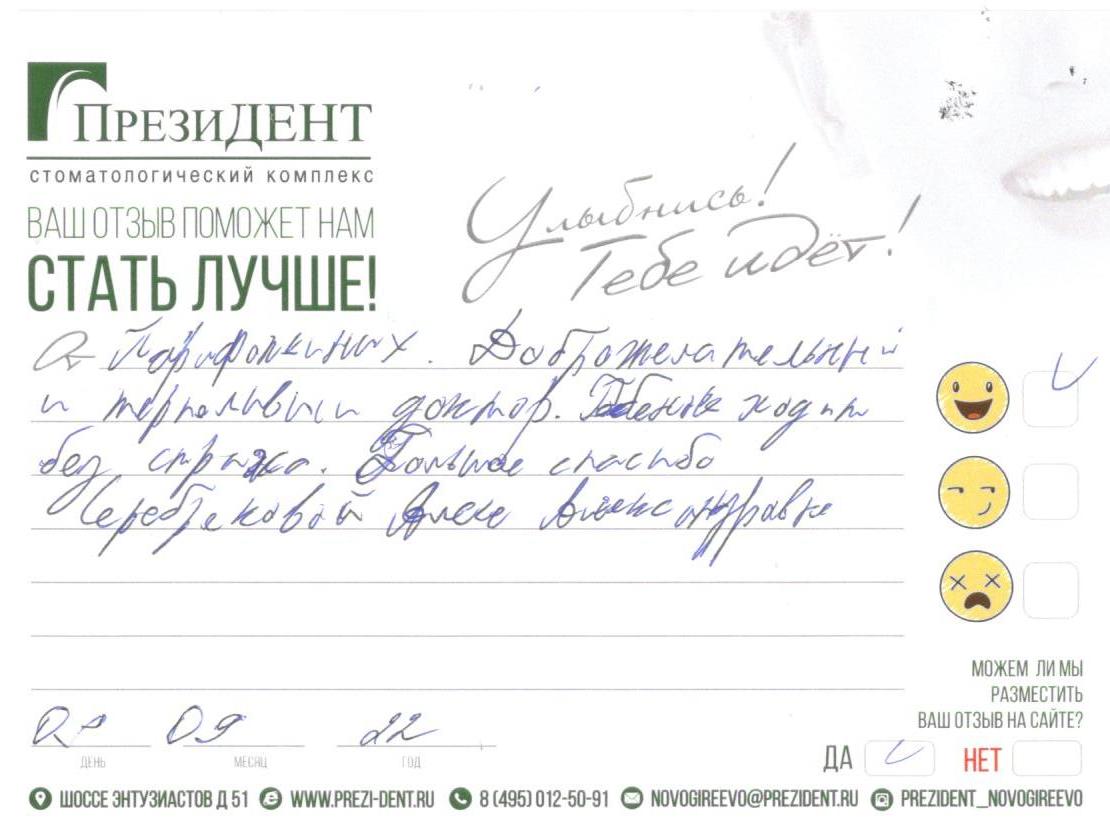 ПРЕЗИДЕНТ
стоматологический комплекс
ВАШ ОТЗЫВ ПОМОЖЕТ НАМ
СТАТЬ ЛУЧШЕ!
Улыбнись!
Тебе идёт!
От Доброжелательный
и терпеливый доктор. ходит
без страха. Большое спасибо
Серебряковой Александровне
09 22
ДЕНЬ МЕСЯЦ ГОД
МОЖЕМ ЛИ МЫ
РАЗМЕСТИТЬ
ВАШ ОТЗЫВ НА САЙТЕ?
ДА НЕТ
ШОССЕ ЭНТУЗИАСТОВ Д 51 WWW.PREZI-DENT.RU 8 (495) 012-50-91 NOVOGIREEVO@PREZIDENT.RU PREZIDENT_NOVOGIREEVO